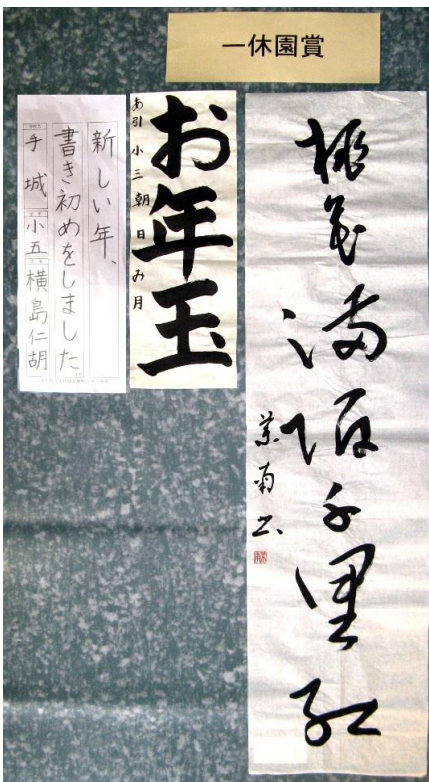 一休園賞
桃花満陌千里紅
お年玉
あ引 小三 朝日み月
新しい年、
書き初めをしました
手城 小五 横島仁胡